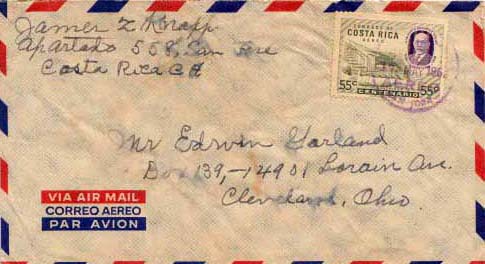 James Z Knapp
Apartado 558, San Jose
Costa Rica CA
CORREOS DE
COSTA RICA
AEREO
55c CENTENARIO 55c
MAY 196
Mr Edwin Garland
Box 139,-14901 Lorain Av.
Cleveland, Ohio.
VIA AIR MAIL
CORREO AEREO
PAR AVION